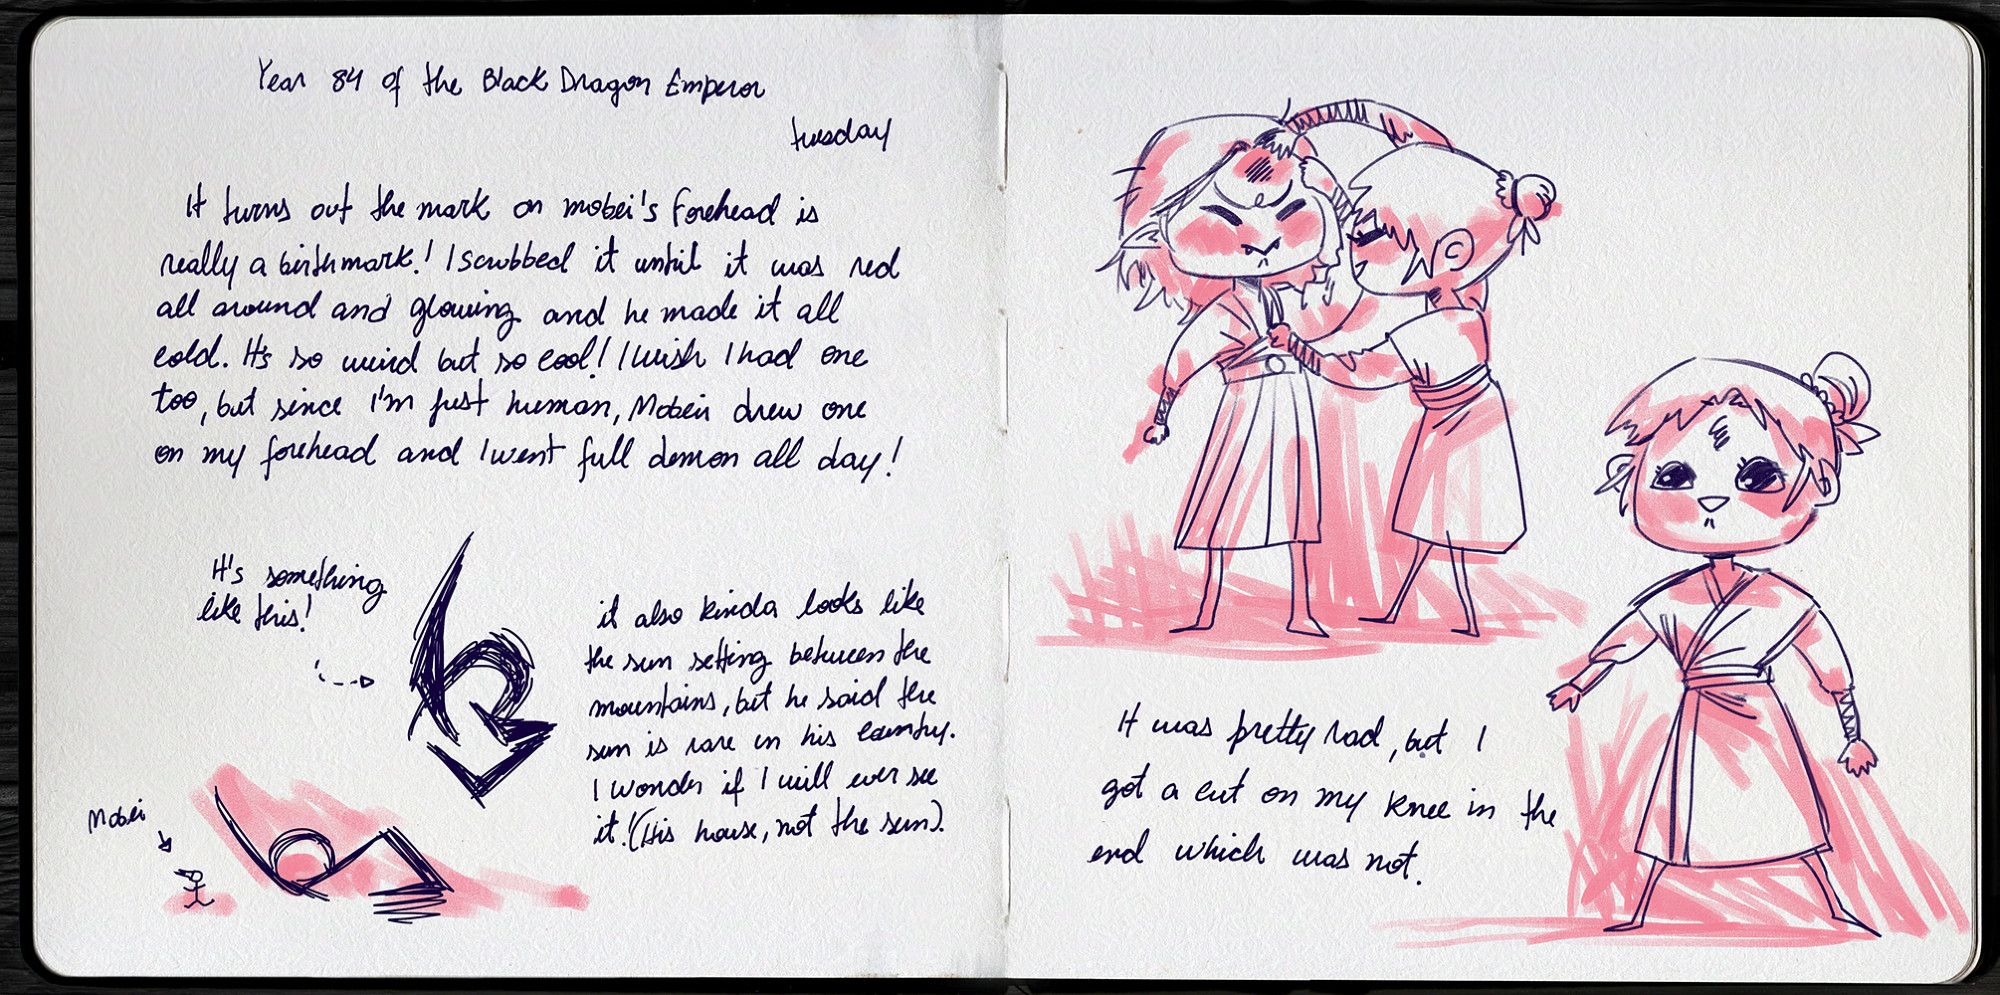 Year 84 of the Black Dragon Emperor
tuesday
It turns out the mark on mobei's Forehead is
really a birthmark! I scrubbed it until it was red
all around and glowing and he made it all
cold. It's so weird but so cool! I wish I had one
too, but since I'm just human, Mobei drew one
on my forehead and I went full demon all day!
It's something
like this!
it also kinda looks like
the sun setting between the
mountains, but he said the
sun is rare in his country.
I wonder if I will ever see
it! (His house, not the sun).
Mobei
It was pretty rad, but I
got a cut on my knee in the
end which was not.